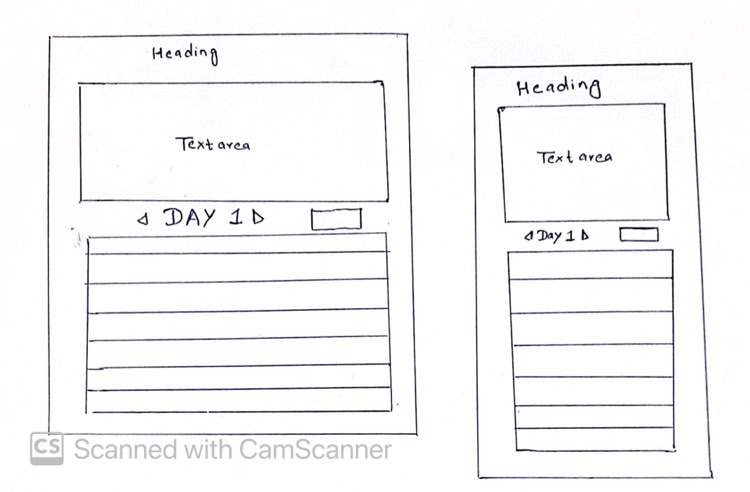 Heading
Text area
◁ DAY 1 ▷
Heading
Text area
◁ Day 1 ▷
CS Scanned with CamScanner